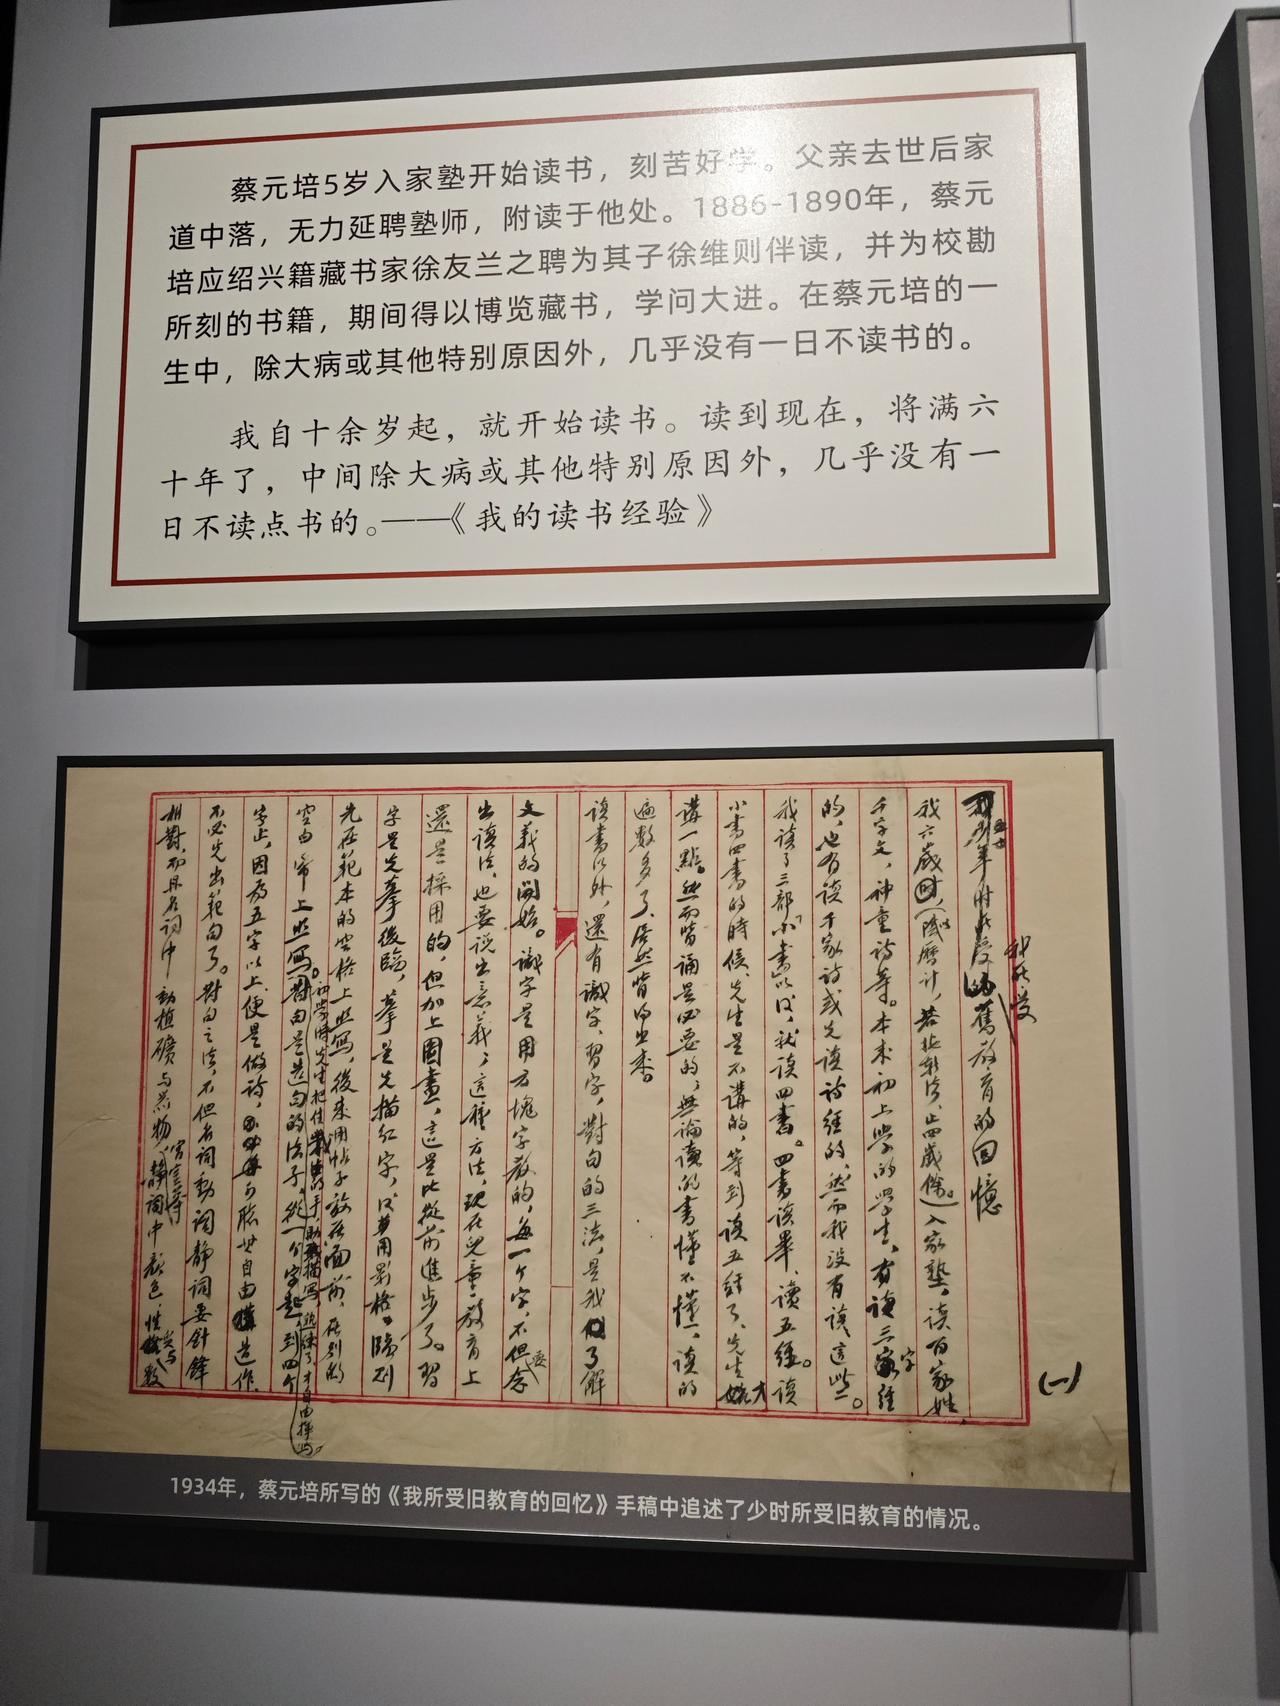 蔡元培5岁入家塾开始读书，刻苦好学。父亲去世后家
道中落，无力延聘塾师，附读于他处。1886-1890年，蔡元
培应绍兴籍藏书家徐友兰之聘为其子徐维则伴读，并为校勘
所刻的书籍，期间得以博览藏书，学问大进。在蔡元培的一
生中，除大病或其他特别原因外，几乎没有一日不读书的。
我自十余岁起，就开始读书。读到现在，将满六
十年了，中间除大病或其他特别原因外，几乎没有一
日不读点书的。——《我的读书经验》
(一)
我所受
舊教育的回憶
我六歲時，（陰曆計，若非新法，止四歲餘。）入家塾，讀百家姓，
千字文，神童詩等。本來初上學的學生，有讀三字經
的，也有讀千家詩或先讀詩經的，然而我沒有讀這些。
我讀了三部「小書」以後，就讀四書。四書讀畢，讀五經。讀
小書四書的時候，先生是不講的，等到讀五經了，先生才
講一點。然而背誦是必要的，無論讀的書懂不懂，讀的
遍數多了，居然背得出來。
讀書以外，還有識字，習字，對句的三法，是我了解
文義的開始。識字是用方塊字教的，每一個字，不但要念
出讀法，也要說出意義，這種方法，現在兒童教育上
還是採用的，但加上圖畫，這是比從前進步了。習
字是先摹後臨，摹是先描紅字，後用影格。臨則
先在範本的空格上照寫，後來用帖子放在面前，在別的
空白紙上照寫。對句是造句的法子，從一個字起，到四個
字止，因為五字以上，便是做詩，可聽其自由造作，
不必先出範句了。對句之法，不但名詞動詞靜詞要針鋒
相對，而且名詞中動植礦與器物宮室等，靜詞中顏色性質與數
1934年，蔡元培所写的《我所受旧教育的回忆》手稿中追述了少时所受旧教育的情况。